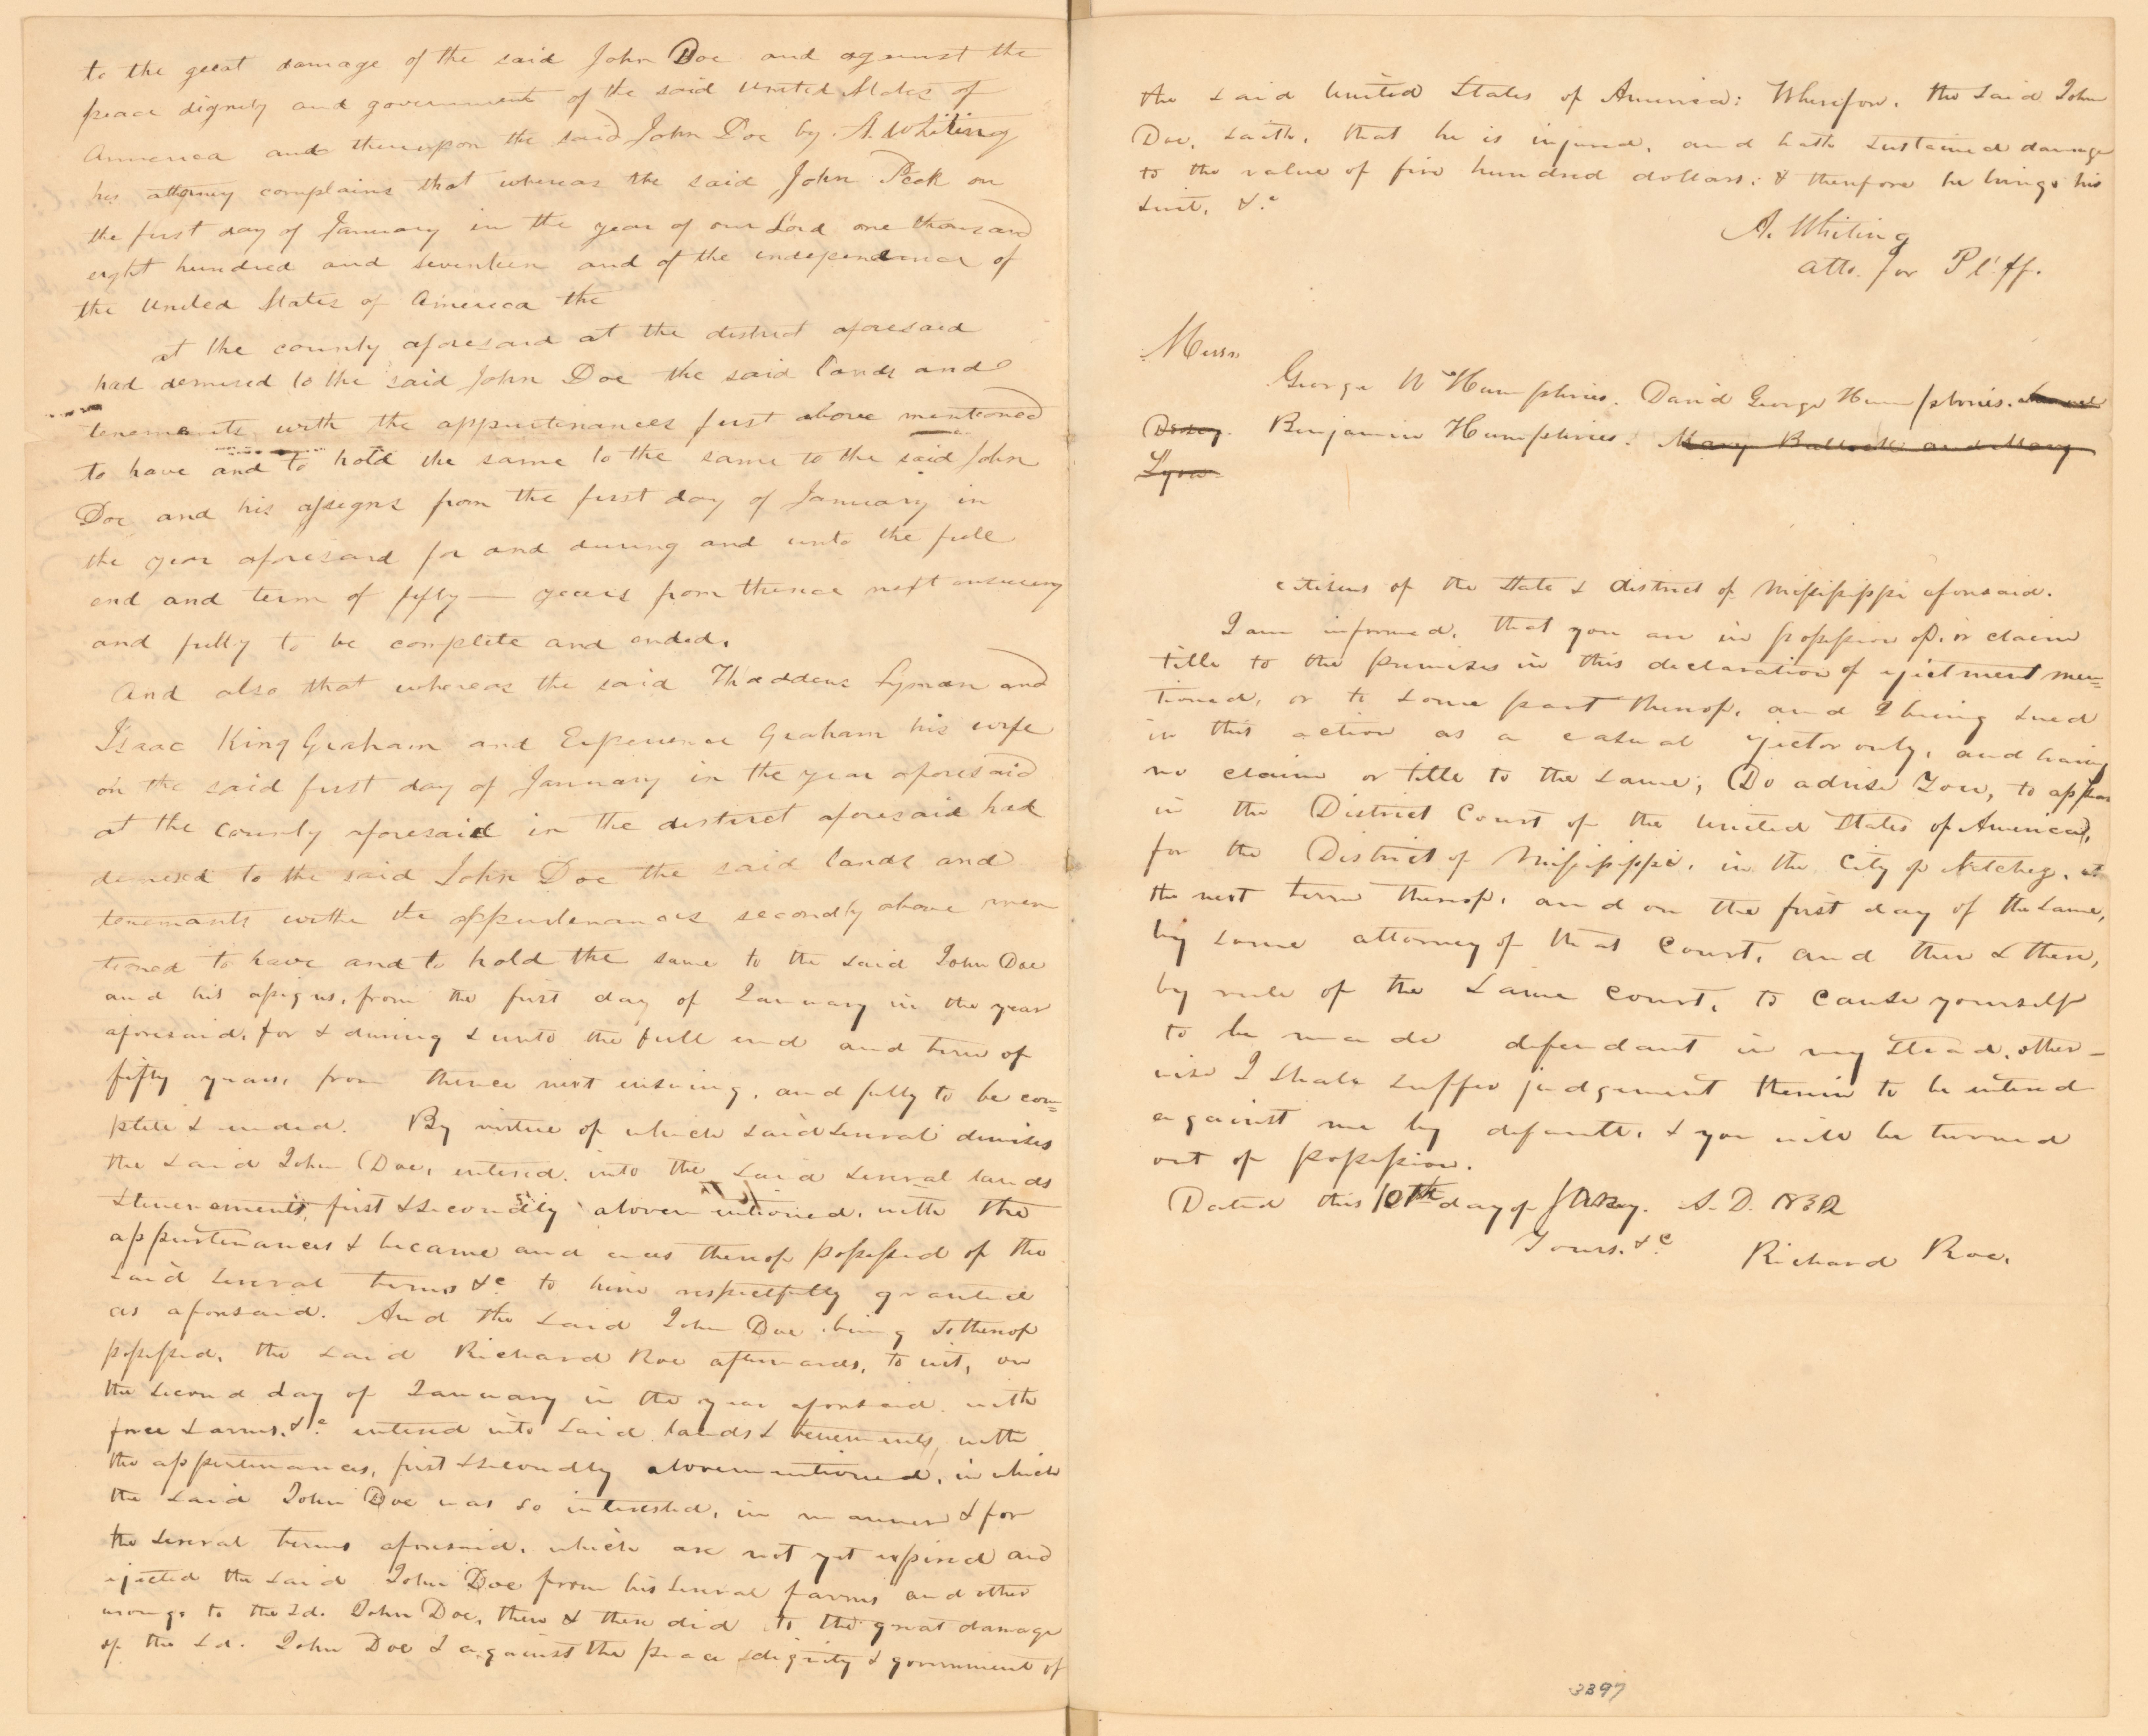 to the great damage of the said John Doe and against the
peace dignity and government of the said United States of
America and thereupon the said John Doe by A. Whiting
his attorney complains that whereas the said John Peck on
the first day of January in the year of our Lord one thousand
eight hundred and seventeen and of the independence of
the United States of America the
at the county aforesaid at the district aforesaid
had demised to the said John Doe the said lands and
tenements with the appurtinances first above mentioned
to have and to hold the same to the same to the said John
Doe and his assigns from the first day of January in
the year aforesaid for and during and unto the full
end and term of fifty — years from thence next ensueing
and fully to be complete and ended.
And also that whereas the said Thaddeus Lyman and
Isaac King Graham and Experience Graham his wife
on the said first day of January in the year aforesaid
at the county aforesaid in the district aforesaid had
demised to the said John Doe the said lands and
tenemants withe the appurtenances secondly above men
tioned to have and to hold the same to the said John Doe
and his assigns, from the first day of January in the year
aforesaid, for & during & unto the full end and term of
fifty years, from thence next ensuing, and fully to be com=
plete & ended. By virtue of which said several demises
the said John Doe, entered into the said several lands
& tenements, first & secondly above mentioned, with the
appurtenances & became and was thereof possessed of the
said several terms &c to him respectfully granted
as aforesaid. And the said John Doe being so thereof
possessed, the said Richard Roe afterwards, to wit, on
the second day of January in the year aforesaid with
force & arms, &c entered into said lands & tenements, with
the appurtenances, first & secondly abovementioned, in which
the said John Doe was so interested, in manner & for
the several terms aforesaid, which are not yet expired and
ejected the said John Doe from his several farms and other
wrongs to the sd. John Doe, then & there did to the great damage
of the sd. John Doe & against the peace & dignity & government of
the said United States of America: Wherefore, the said John
Doe, saith, that he is injured, and hath sustained damage
to the value of five hundred dollars; & therefore he brings his
suit, &c
A. Whiting
atto. for Pl'ff.
Messrs
George W Humphries. David George Humphries.
Dorsey. Benjamin Humphries. Mary Bullock and Mary
Lyon
citizens of the State & district of Mississippi aforesaid.
I am informed, that you are in possession of, or claim
title to the premises in this declaration of ejectment men=
tioned, or to some part thereof, and I being sued
in this action as a casual ejector only, and having
no claim or title to the same; Do advise You, to appear
in the District Court of the United States of America,
for the District of Mississippi, in the City of Natchez, at
the next term thereof, and on the first day of the same,
by some attorney of that Court, and then & there,
by rule of the same court, to cause yourself
to be made defendant in my stead, other-
wise I shall suffer judgement therein to be entered
against me by default, & you will be turned
out of possession.
Dated this 10th day of A. D. 1832
Yours, &c Richard Roe.
3397